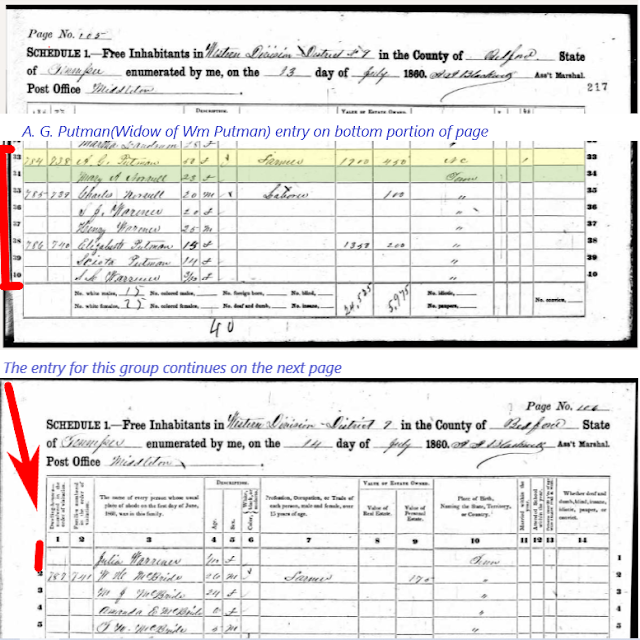 Page No. 105
SCHEDULE 1.—Free Inhabitants in Western Division District # 9 in the County of Bedford State
of Tennessee enumerated by me, on the 13 day of July 1860. Ass't Marshal.
Post Office Middleton 217
DESCRIPTION. VALUE OF ESTATE OWNED.
A. G. Putman(Widow of Wm Putman) entry on bottom portion of page
Martha
33 784 738 A. G. Putman 50 f Farmer 1700 450 N C 1 33
34 Mary A Norvell 23 f Tenn 34
35 785 739 Charles Norvell 20 m Laborer 100 " 35
36 S J Warener 20 f " 36
37 Henry Warner 25 m " 37
38 786 740 Elizabeth Putman 15 f 1350 200 " 38
39 Sciota Putman 14 f " 39
40 Warriner f " 40
No. white males, 15 No. colored males, No. foreign born, No. blind, 24,525 5,975 No. idiotic, No. convicts,
No. white females, 25 No. colored females, No. deaf and dumb, No. insane, No. paupers,
40
The entry for this group continues on the next page
Page No. 106
SCHEDULE 1.—Free Inhabitants in Western Division District 9 in the County of Bedford State
of Tennessee enumerated by me, on the 14 day of July 1860. Ass't Marshal.
Post Office Middleton
DESCRIPTION. VALUE OF ESTATE OWNED.
The name of every person whose usual place of abode on the first day of June, 1860, was in this family. Age. Sex. Profession, Occupation, or Trade of each person, male and female, over 15 years of age. Value of Real Estate. Value of Personal Estate. Place of Birth, Naming the State, Territory, or Country. Whether deaf and dumb, blind, insane, idiotic, pauper, or convict.
1 2 3 4 5 6 7 8 9 10 11 12 13 14
Julia Warrener f Tenn 1
2 787 741 W McBride 26 m Farmer 170 " 2
3 M J McBride 24 f " 3
4 Amanda E McBride f " 4
5 McBride m " 5